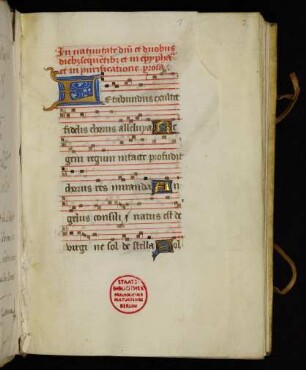 In nativitate dni et duobus
dieb; sequentib; et in epyphia
et in purificatione prosa.
Letabundus exultet
fidelis chorus alleluya Re
gem regum intacte profudit
thorus res miranda An
gelus consili j natus est de
virgi ne sol de stella Sol
STAATS-
BIBLIOTHEK
PREUSSISCHER
KULTURBESITZ
BERLIN